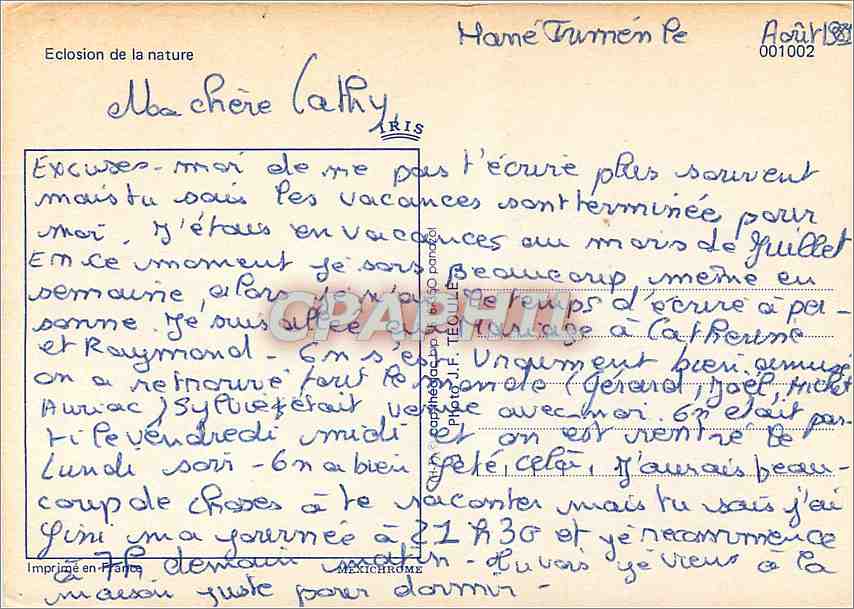 Août 198
001002
Eclosion de la nature
Ma chère Cathy,
IRIS
Excuses-moi de ne pas t'écrire plus souvent
mais tu sais les vacances sont terminée pour
moi. J'étais en vacances au mois de Juillet
En ce moment je sors beaucoup même en
semaine, alors je n'ai le temps d'écrire à per-
sonne. Je suis allée au Mariage à Catherine
et Raymond - On s'est vraiment bien amusé
on a retrouvé tout le monde (Gérard, Joël, Michel
Auriac) Sylvie était venue avec moi. On était par-
ti le vendredi midi et on est rentré le
Lundi soir - On a bien fêté, celà, J'aurais beau-
coup de choses à te raconter mais tu sais j'ai
fini ma journée à 21 h 30 et je recommence
à 7h demain matin - Tu vois je viens à la
maison juste pour dormir -
Imprimé en France
MEXICHROME
Photo J.F. TEQUILE
CPAPHIL